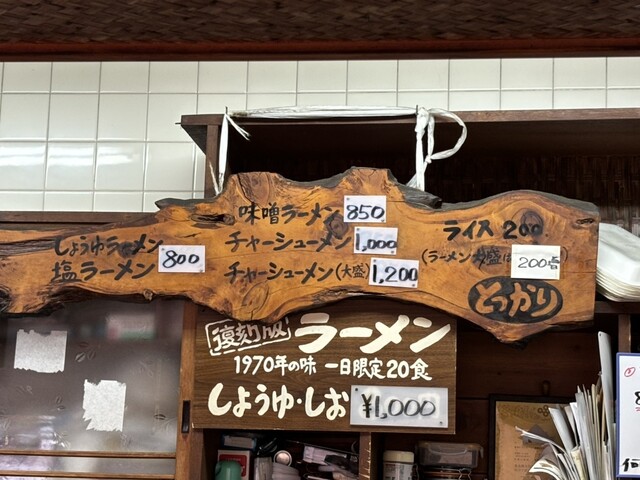 しょうゆラーメン
塩ラーメン 800
味噌ラーメン 850
チャーシューメン 1,000
チャーシューメン(大盛) 1,200
ライス 200
(ラーメン大盛は 200増)
とっかり
復刻版 ラーメン
1970年の味 一日限定20食
しょうゆ・しお ¥1,000